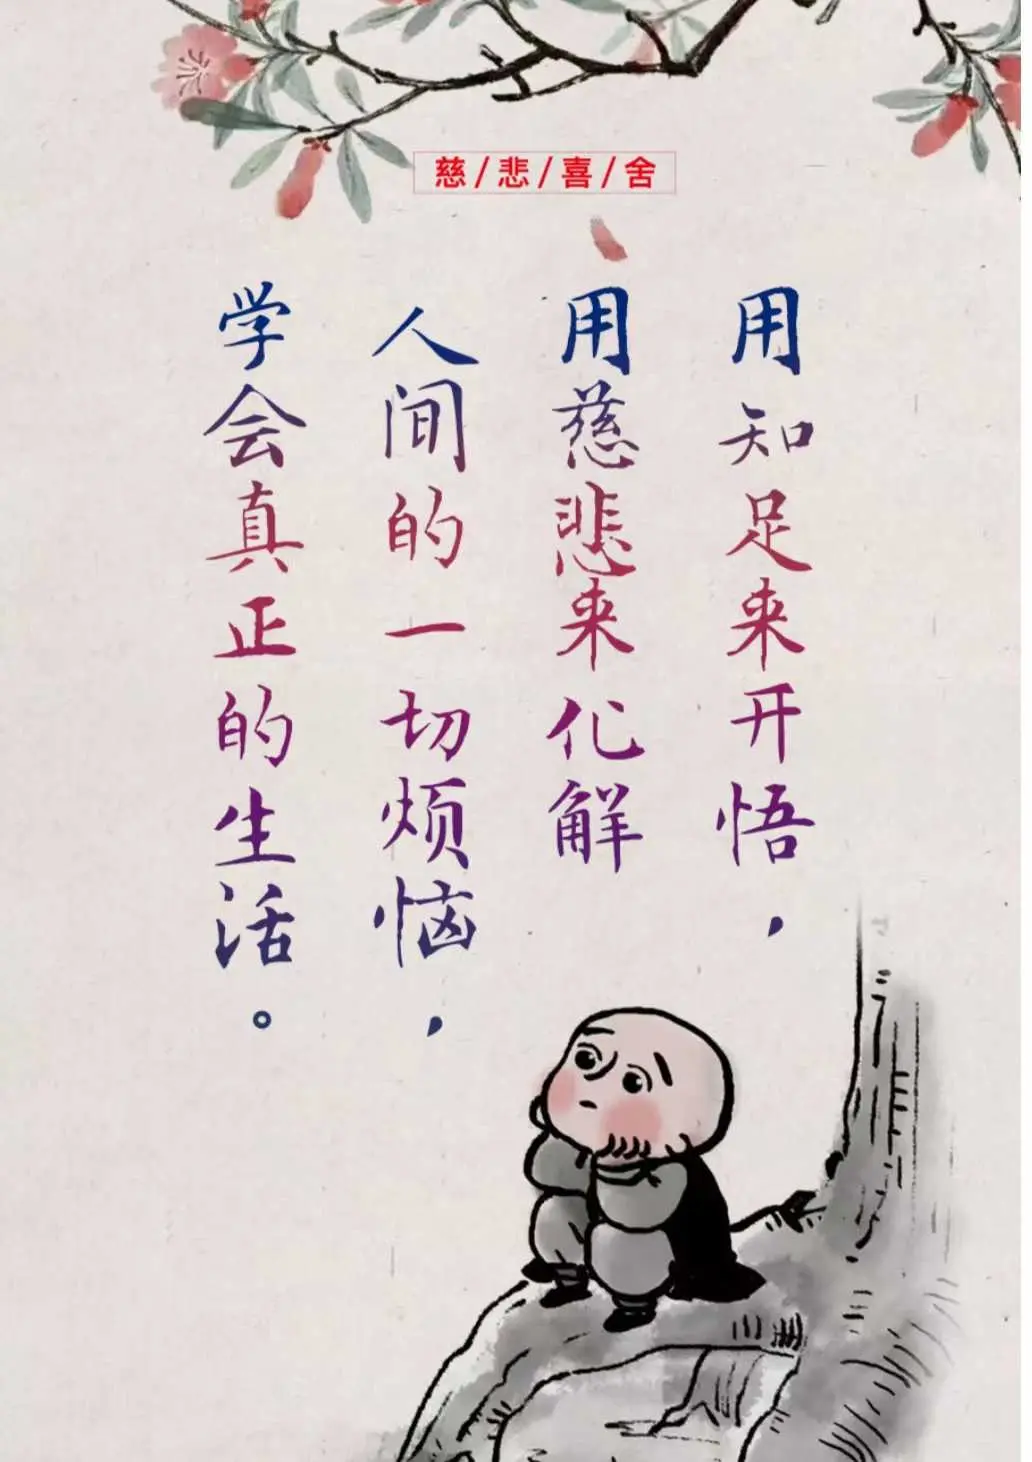 慈/悲/喜/舍
用知足来开悟，
用慈悲来化解
人间的一切烦恼，
学会真正的生活。